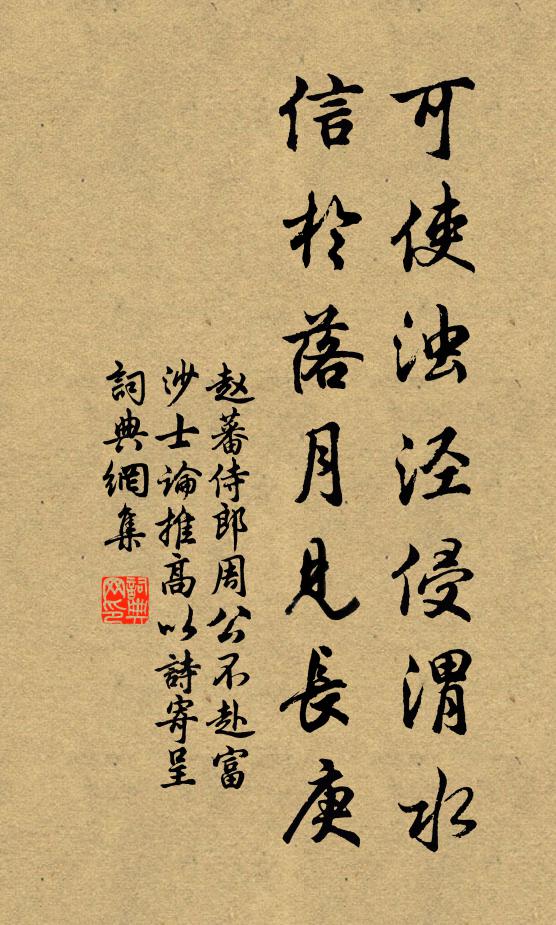 可使浊泾侵渭水
信於落月見長庚
赵蕃侍郎周公不赴富
沙士論推高以詩寄呈
詞典網集
詞典网印